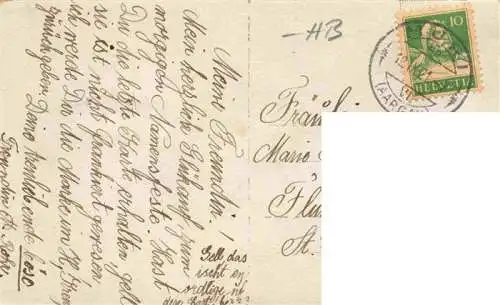 Meine Freundin!
Mein herzliche Glükauf zum
morgigen Namensfeste. Hast
Du die letzte Karte erhalten gell
sie ist nicht frankiert gewesen
ich werde Dir die Marke im
zurück geben Deine
Freundin
Gell, das
ischt en
-HB
10
HELVETIA
(AARGAU)
Fräul
Marie
Flu
St.